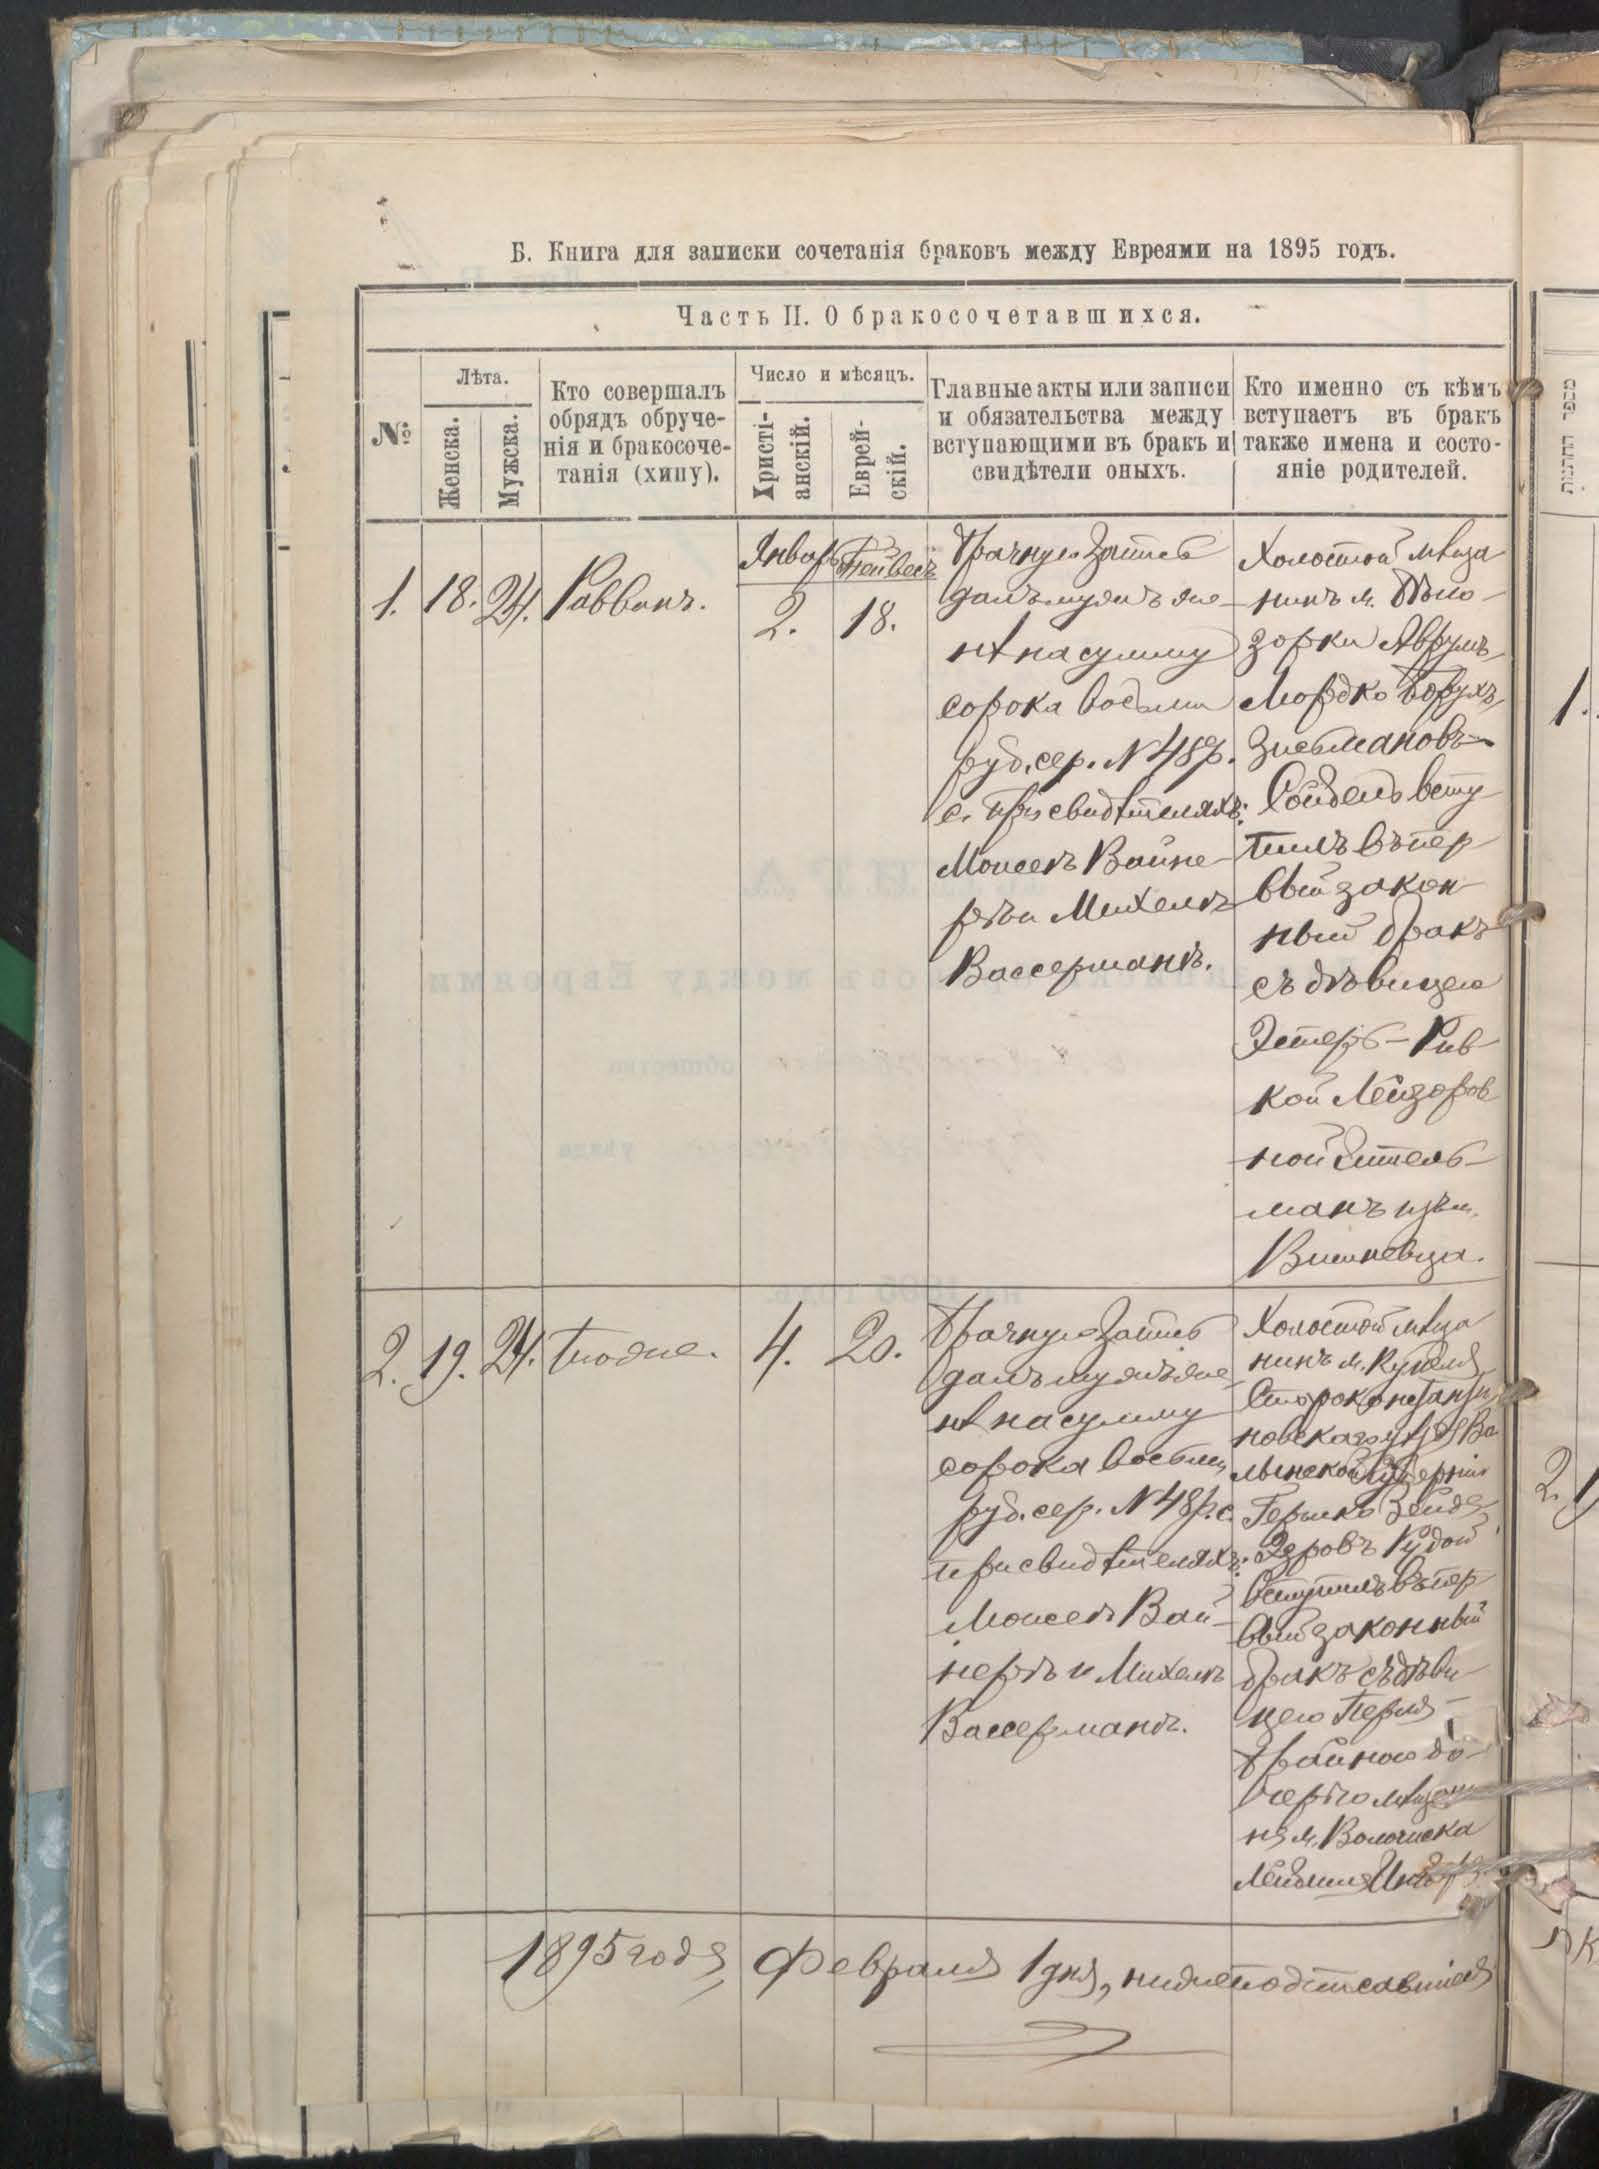 Б. Книга для записки сочетанія браковъ между Евреями на 1895 годъ.
Часть II. О бракосочетавшихся.
№
Лѣта.
Женска.
Мужска.
Кто совершалъ
обрядъ обруче-
нія и бракосоче-
танія (хипу).
Число и мѣсяцъ.
Христі-
анскій.
Еврей-
скій.
Главные акты или записи
и обязательства между
вступающими въ бракъ и
свидѣтели оныхъ.
Кто именно съ кѣмъ
вступаетъ въ бракъ
также имена и состо-
яніе родителей.
1.
18.
24.
Раввинъ.
Январь
2.
Тейвесъ
18.
Брачную запись
далъ мужъ же-
нѣ на сумму
сорока восьми
руб. сер. N 48 р.
с. при свидѣтеляхъ:
Моисеѣ Вайне-
рѣ и Михелѣ
Вассерманѣ.
Холостой мѣща
нинъ м. Бѣло-
зорки Аврумъ
Мордко Борухъ
Зисьмановъ
вступ
илъ въ пер-
вый закон-
ный бракъ
съ дѣвицею
Эстеръ-Рив-
кой Лейзоров
ной Дитель-
манъ изъ м.
Вишневца.
2.
19.
24.
тоже.
4.
20.
Брачную запись
далъ мужъ же-
нѣ на сумму
сорока восьми
руб. сер. N 48 р. с.
при свидѣтеляхъ:
Моисеѣ Вай-
нерѣ и Михелѣ
Вассерманѣ.
Холостой мѣща
нинъ м. Купеля
Староконстанти
новскаго уѣзда Во
лынской Губерніи
Гершко Зейде
Рудой
вступилъ въ пер
вый законный
бракъ съ дѣви-
цею Перля-
Брайною до-
черью мѣщани
на м. Волочиска
1895 года, Февраля 1 дня, нижеподписавшіеся
1.
2.